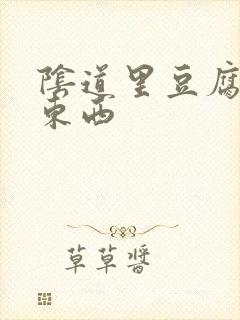 陰道里豆腐
東西
草草醬